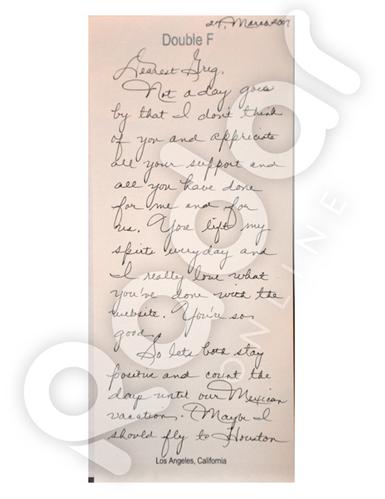 24, March 2009
Double F
Dearest Greg,
Not a day goes
by that I don't think
of you and appreciate
all your support and
all you have done
for me and for
us. You lift my
spirits everyday and
I really love what
you've done with the
website. You're so
good.
So lets both stay
positive and count the
days until our Mexican
vacation. Maybe I
should fly to Houston
Los Angeles, California
radar
ONLINE